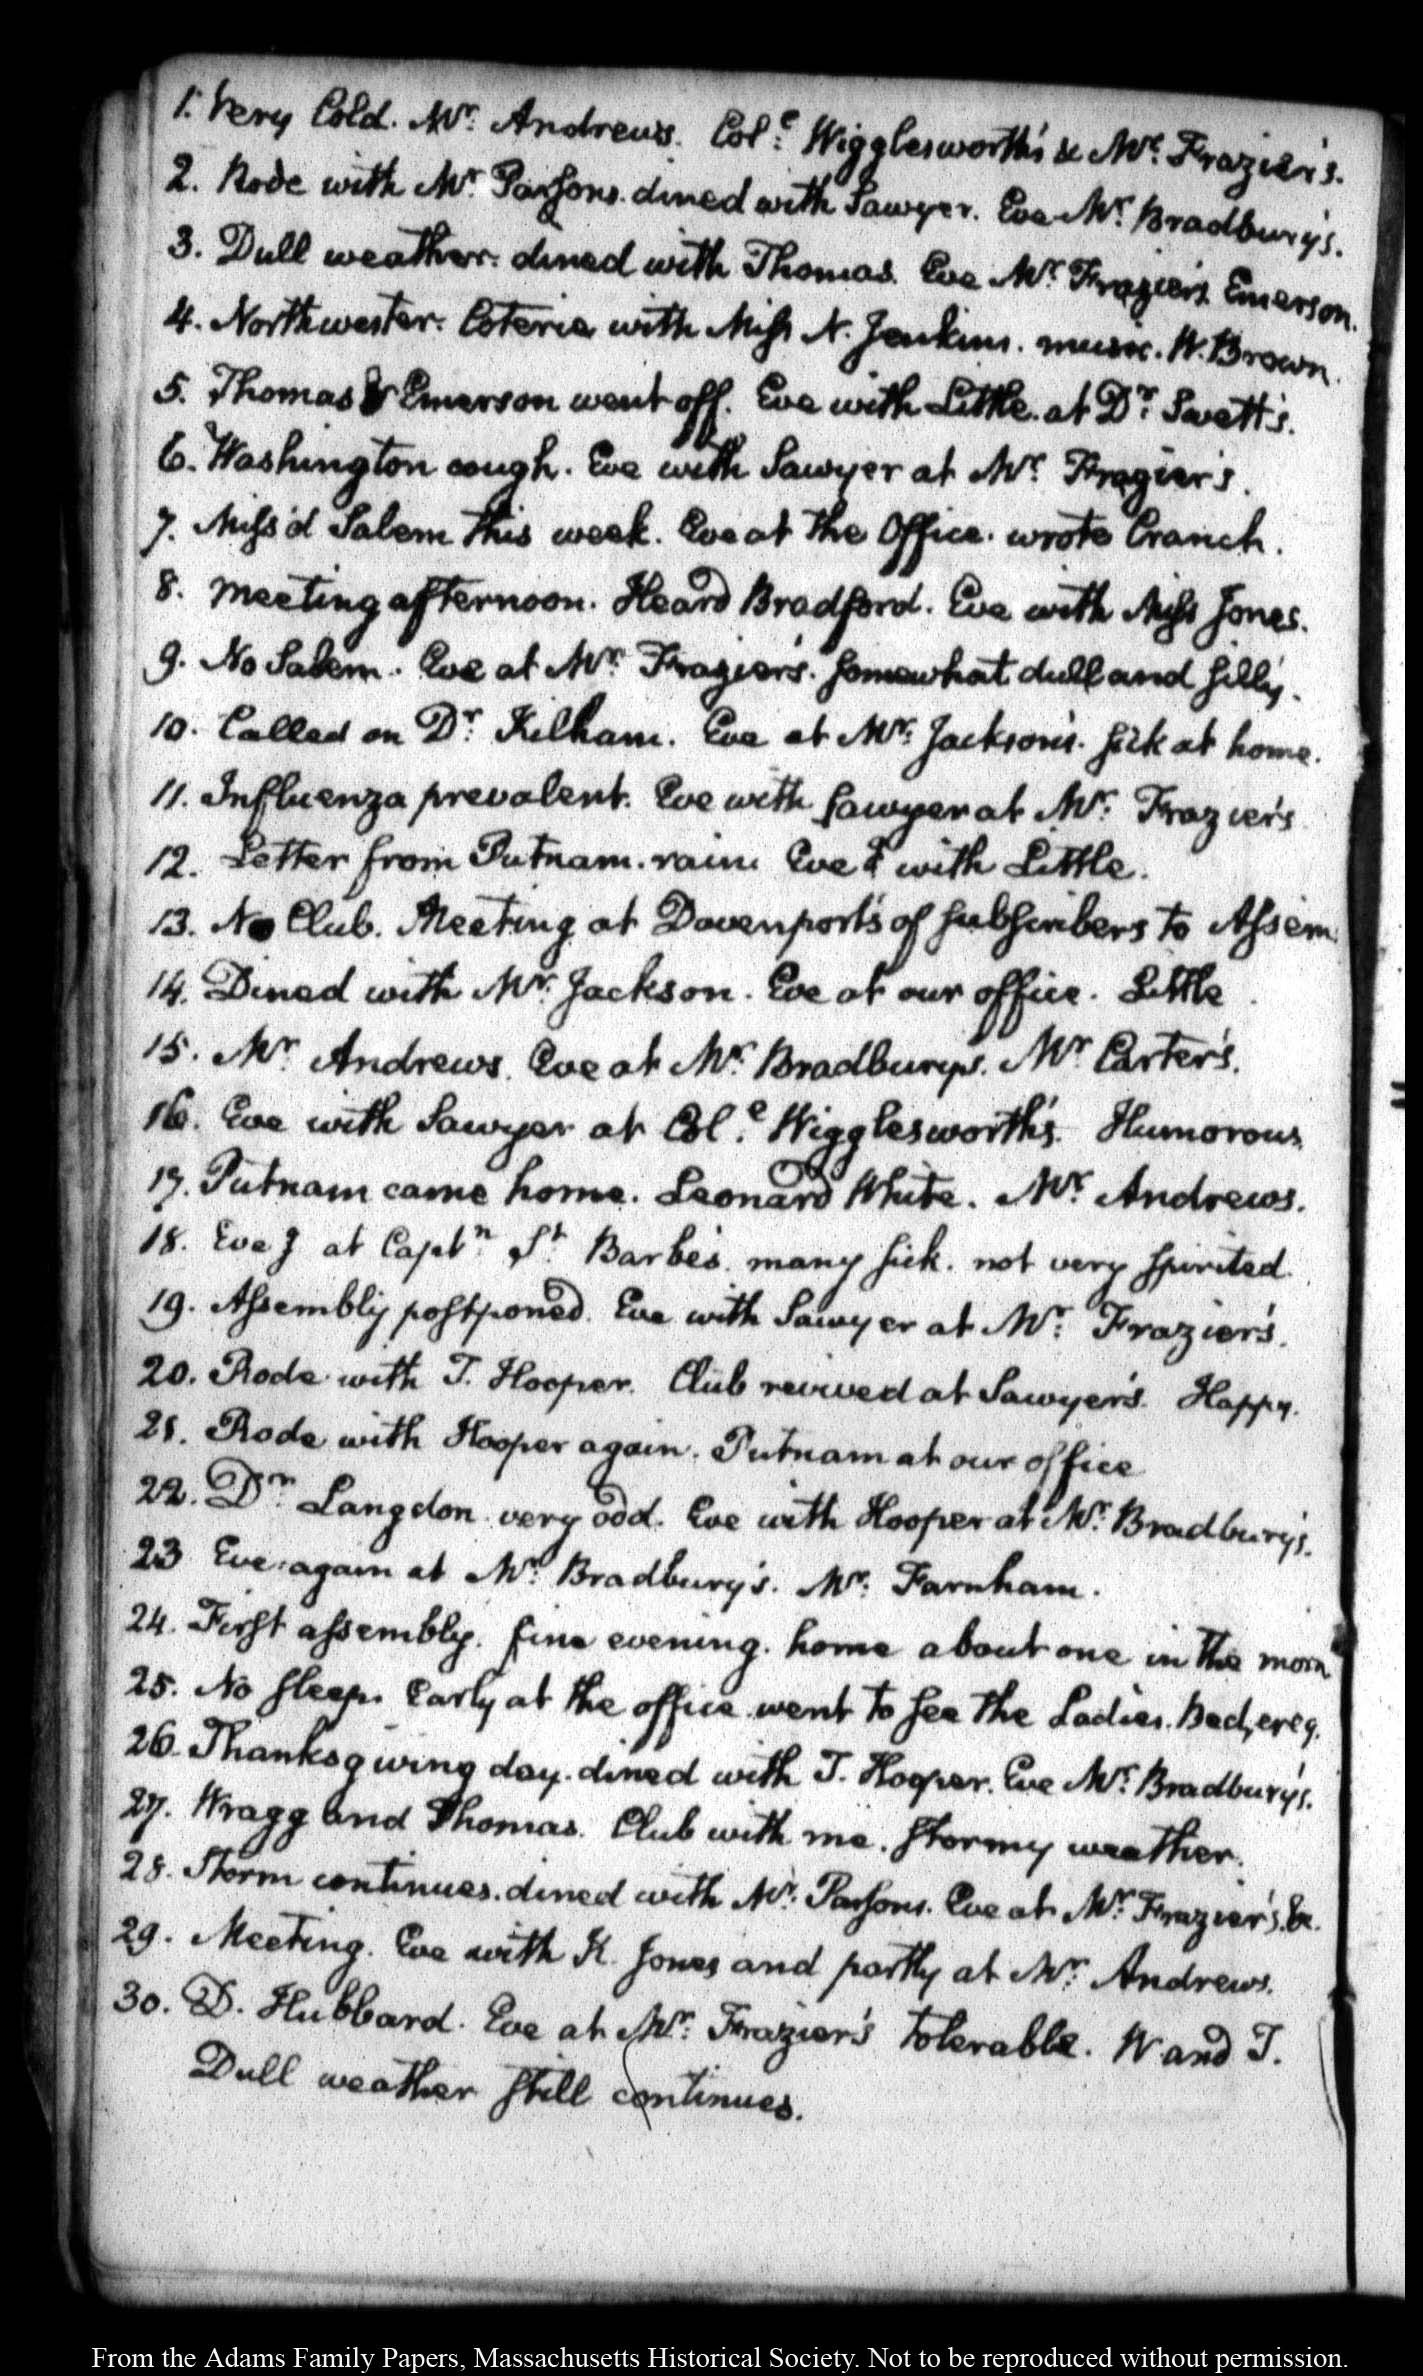 1. Very Cold. Mr. Andrews. Col.e Wigglesworth's & Mr. Frazier's.
2. Rode with Mr. Parsons. dined with Sawyer. Eve Mr. Bradbury's.
3. Dull weather. dined with Thomas. Eve Mr. Frazier's. Emerson.
4. Northwester. Coterie with Miss N. Jenkins. music. W. Brown.
5. Thomas & Emerson went off. Eve with Little. at Dr. Swett's.
6. Washington cough. Eve with Sawyer at Mr. Frazier's.
7. Miss'd Salem this week. Eve at the Office. wrote Cranch.
8. Meeting afternoon. Heard Bradford. Eve with Miss Jones.
9. No Salem. Eve at Mr. Frazier's. somewhat dull and silly.
10. Called on Dr. Kilham. Eve at Mr. Jackson's. sick at home.
11. Influenza prevalent. Eve with Sawyer at Mr. Frazier's
12. Letter from Putnam. rain. Eve with Little.
13. No Club. Meeting at Davenport's of subscribers to Assem.
14. Dined with Mr. Jackson. Eve at our office. Little.
15. Mr Andrews. Eve at Mr. Bradburys. Mr Carter's.
16. Eve with Sawyer at Col.e Wigglesworth's. Humorous.
17. Putnam came home. Leonard White. Mr. Andrews.
18. Eve at Captn St Barbe's. many sick. not very spirited.
19. Assembly postponed. Eve with Sawyer at Mr. Frazier's.
20. Rode with T. Hooper. Club revived at Sawyer's. Happy.
21. Rode with Hooper again. Putnam at our office
22. Dr. Langdon very odd. Eve with Hooper at Mr. Bradbury's.
23 Eve again at Mr. Bradbury's. Mr. Farnham.
24. First assembly. fine evening. home about one in the morn
25. No sleep. Early at the office went to see the Ladies. Bed,
26. Thanksgiving day. dined with T. Hooper. Eve Mr. Bradbury's.
27. Wragg and Thomas. Club with me. stormy weather.
28. Storm continues. dined with Mr. Parsons. Eve at Mr Frazier's. &c.
29. Meeting. Eve with K. Jones and partly at Mr. Andrews.
30. D. Hubbard. Eve at Mr. Frazier's tolerable. W and T.
Dull weather still continues.
From the Adams Family Papers, Massachusetts Historical Society. Not to be reproduced without permission.